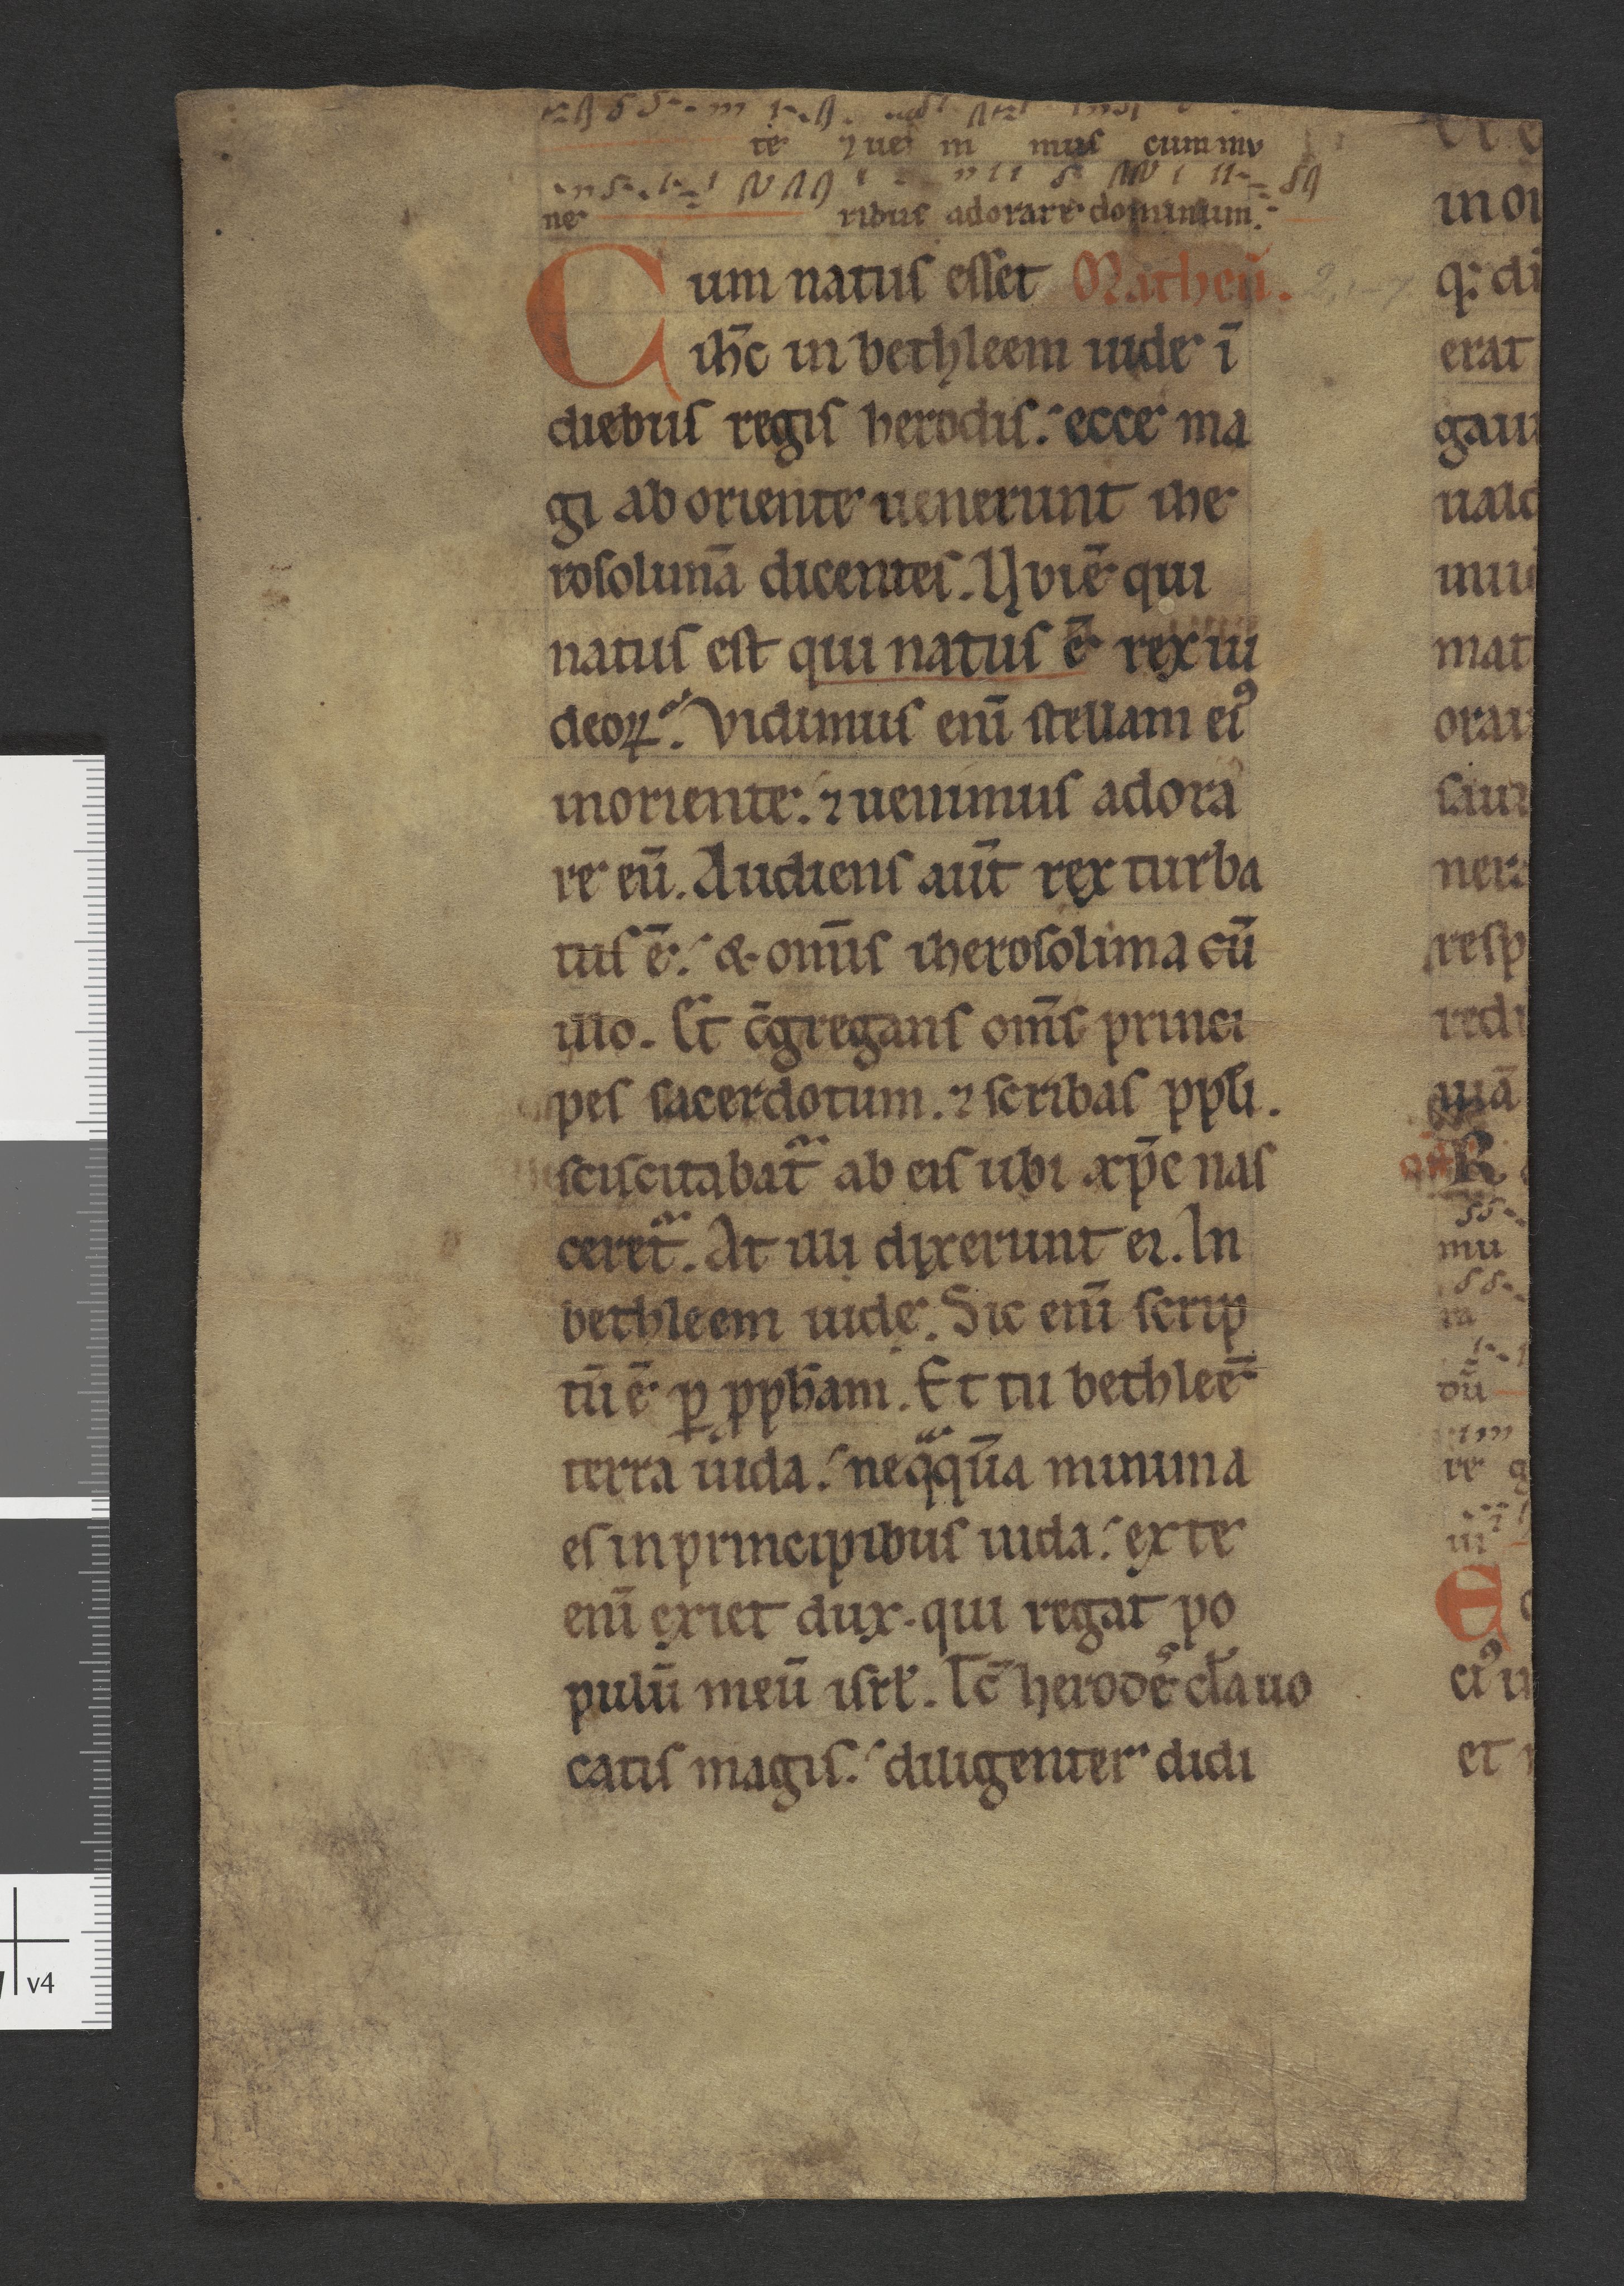 te ⁊ ue ni mus cum mu
ne ribus adorare dominum.
Cum natus esset Matheū.
ih̄c in bethleem iude ī
diebus regis herodis. ecce ma
gi ab oriente uenerunt ihe
rosolimā dicentes. Vbi ē qui
natus est qui natus ē rex iu
deoꝝ. Vidimus enī stellam eiꝰ
in oriente. ⁊ uenimus adora
re eū. Audiens aūt rex turba
tus ē. & om̄is iherosolima cū
illo. Et c̄gregans om̄s princi
pes sacerdotum. ⁊ scribas ppl̄i.
sciscitabat᷑ ab eis ubi xp̄c nas
ceret᷑. At illi dixerunt ei. In
bethleem iude. Sic enī scrip
tū ē ꝑ ꝓph̄am. Et tu bethleē
terra iuda. neq̄qūa minima
es in principibus iuda. ex te
enī exiet dux. qui regat po
pulū meū isrł. Tc̄ herodeˢ cla̅ uo
catis magis. diligenter didi
in or
q: di
erat
gaui
uald
inue
mat
orau
saur
nera
resp
redi
uiā
mu
ra
re g
E
eiꝰ u
et